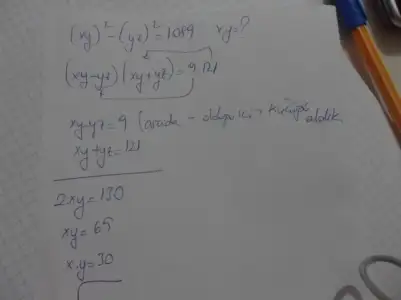 (xy)² - (yz)² = 1089 xy=?
(xy-yz)(xy+yz) = 9.121
xy-yz = 9 (arada - olduğu için küçüğü aldık
xy+yz = 121
2xy = 130
xy = 65
x.y = 30